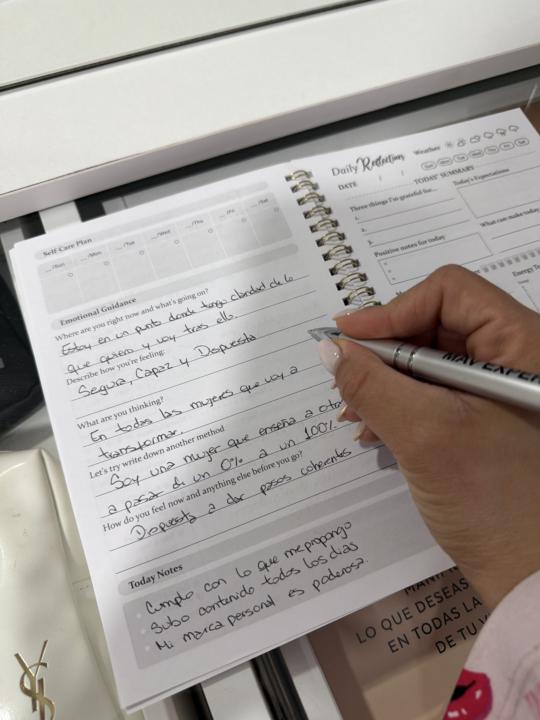 Self-Care Plan
__/Sun __/Mon __/Tue __/Wed __/Thu __/Fri __/Sat
Emotional Guidance
Where are you right now and what's going on?
Estoy en un punto donde tengo claridad de lo
que quiero y voy tras ello
Describe how you're feeling:
Segura, Capaz y Dispuesta
What are you thinking?
En todas las mujeres que voy a
transformar.
Let's try write down another method
Soy una mujer que enseña a
a pasar de un 0% a un 100%
How do you feel now and anything else before you go?
Dispuesta a dar pasos coherentes
Today Notes
Cumplo con lo que me propongo
Subo contenido todos los días
Mi marca personal es poderosa.
Daily Reflection
Weather
DATE / /
Sun Mon Tue Wed Thu Fri Sat
TODAY SUMMARY
Three things I'm grateful for...
1.
2.
3.
Today's Expectations
Positive notes for today
What can make today
Energy
MAV EXPER
LO QUE DESEAS
EN TODAS LA
DE TU
YSL